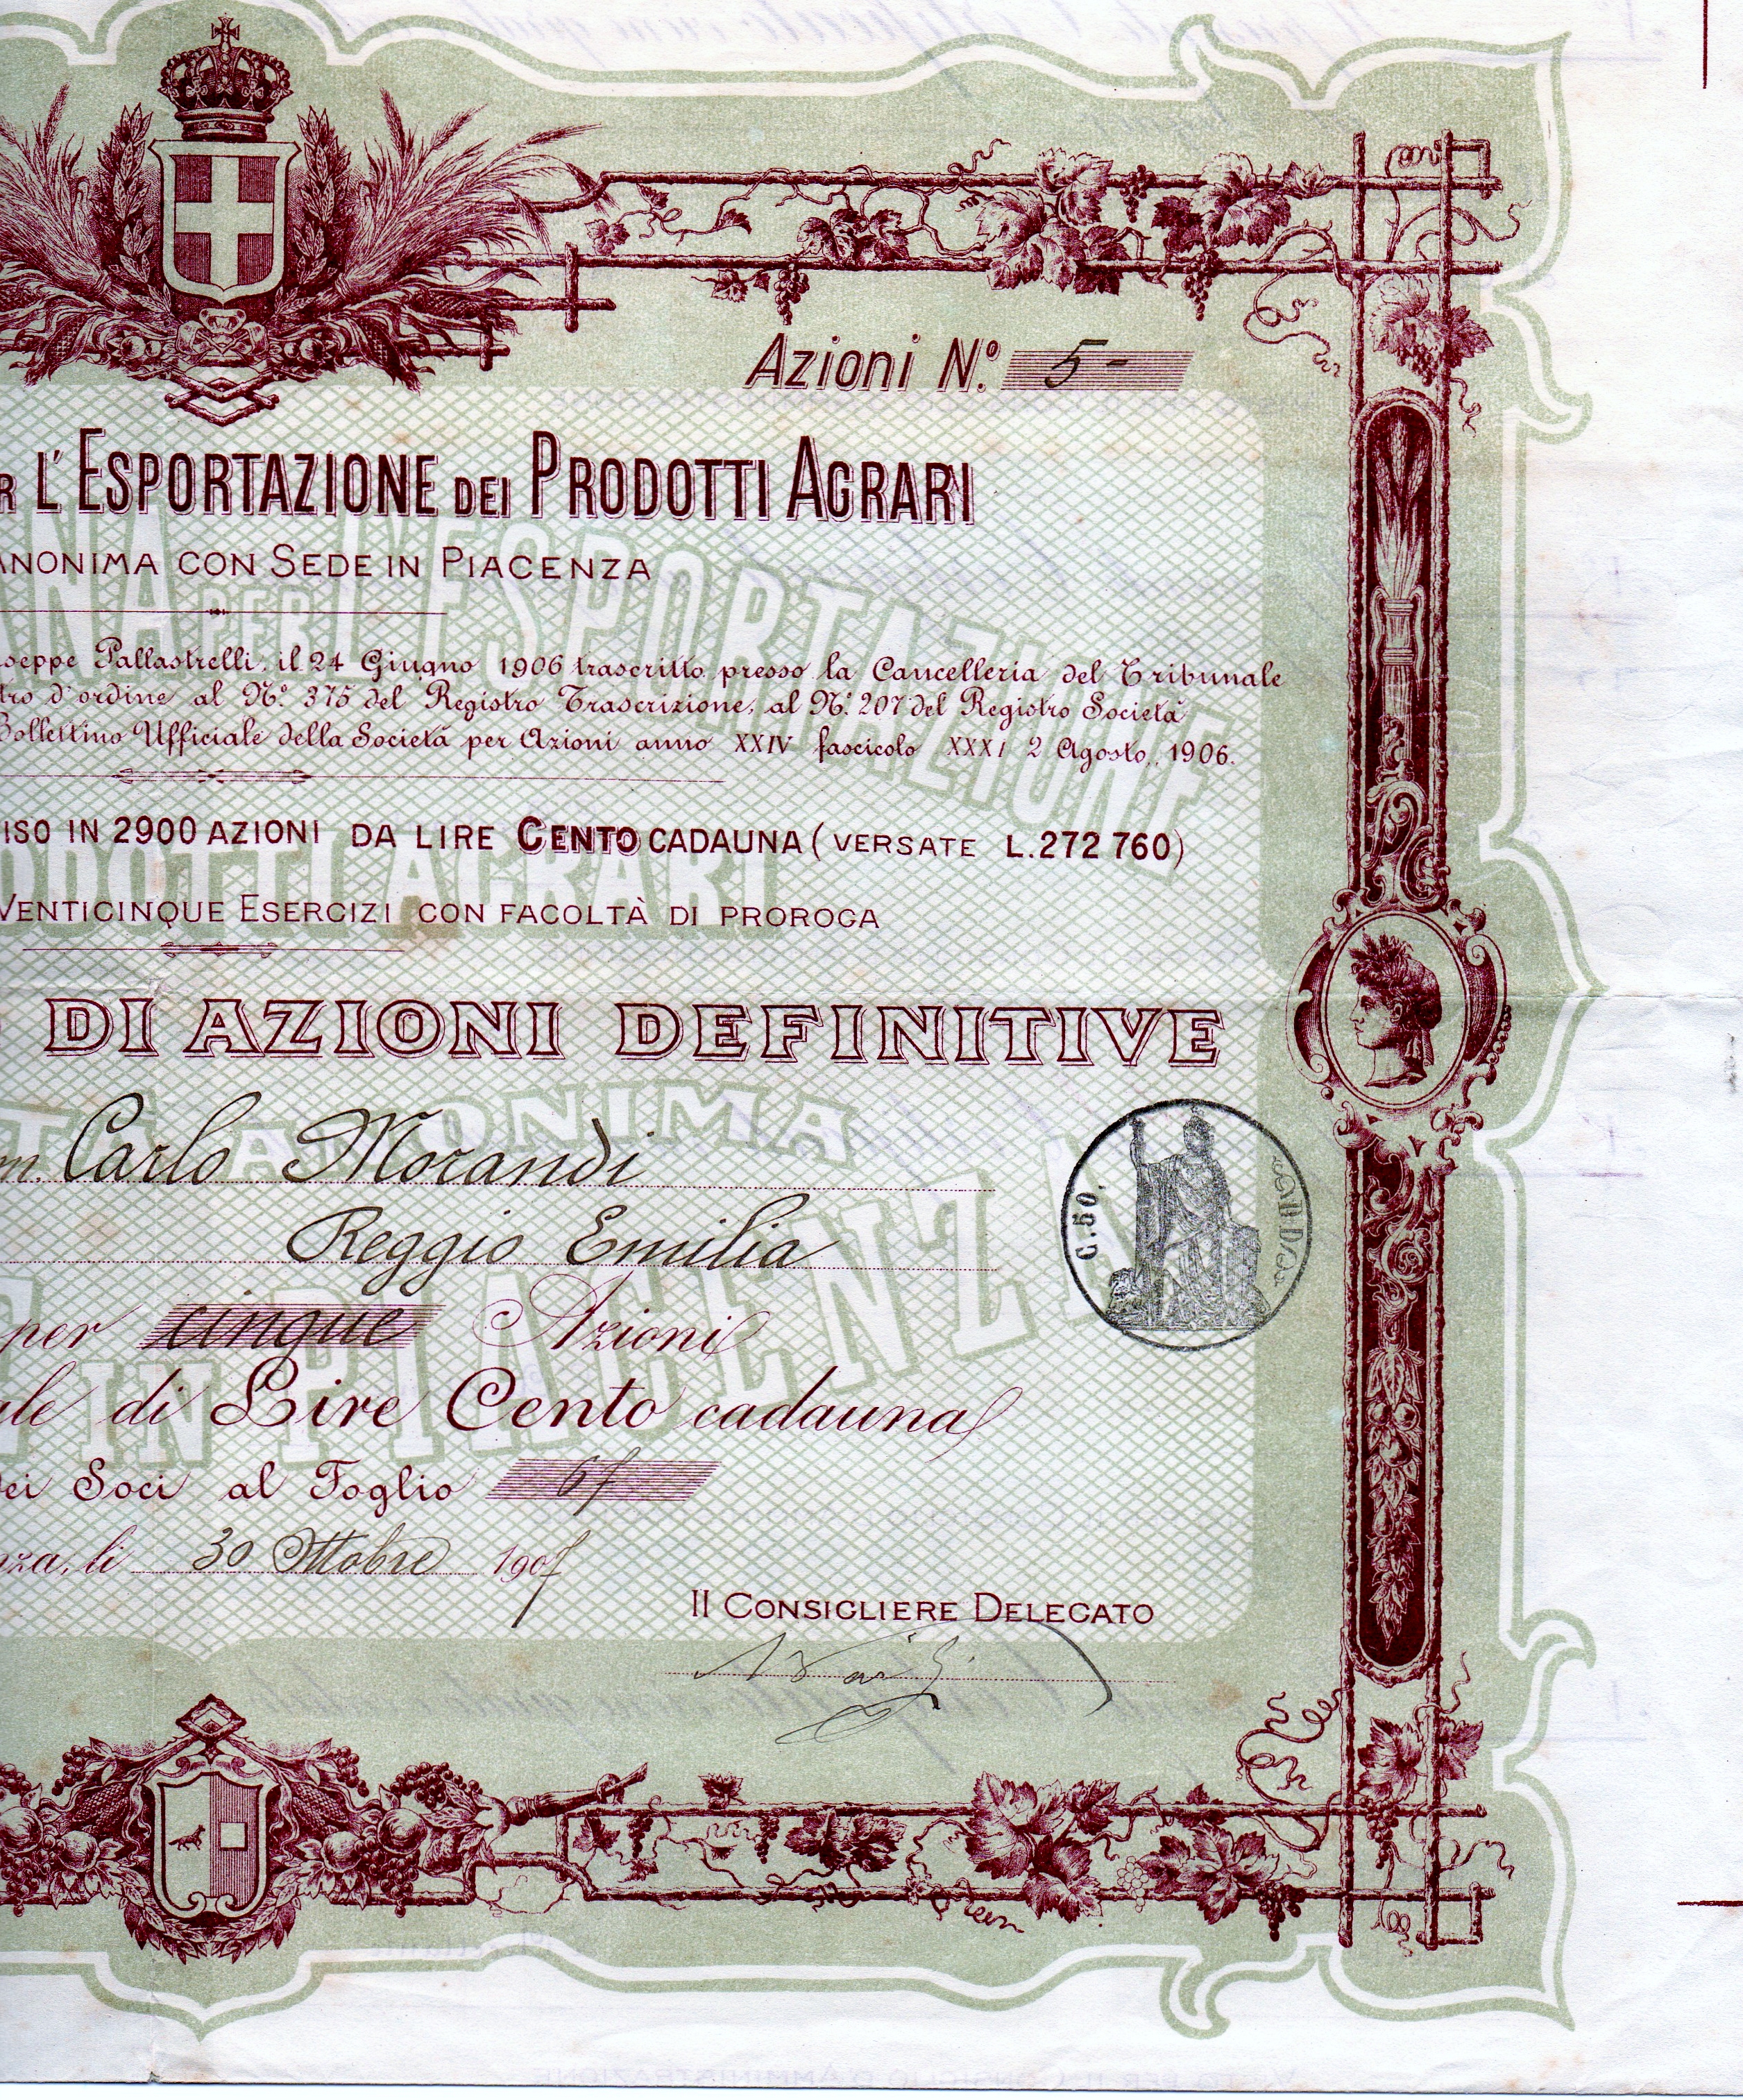 Azioni N.º 5-
R L'ESPORTAZIONE DEI PRODOTTI AGRARI
ANONIMA CON SEDE IN PIACENZA
seppe Pallastrelli, il 24 Giugno 1906 trascritto presso la Cancelleria del Tribunale
tro d'ordine al Nº 375 del Registro Trascrizione, al Nº 207 del Registro Società
Bollettino Ufficiale della Società per Azioni anno XXIV fascicolo XXXI 2 Agosto, 1906.
ISO IN 2900 AZIONI DA LIRE CENTO CADAUNA (VERSATE L.272 760)
VENTICINQUE ESERCIZI CON FACOLTÀ DI PROROGA
DI AZIONI DEFINITIVE
m. Carlo Morandi
Reggio Emilia
C.50.
per cinque Azioni
ale di Lire Cento cadauna
dei Soci al Foglio 67
nza, li 30 Ottobre 1907
Il CONSIGLIERE DELEGATO
ANA PER L'ESPORTAZIONE
ODOTTI AGRARI
TÀ ANONIMA
E IN PIACENZA